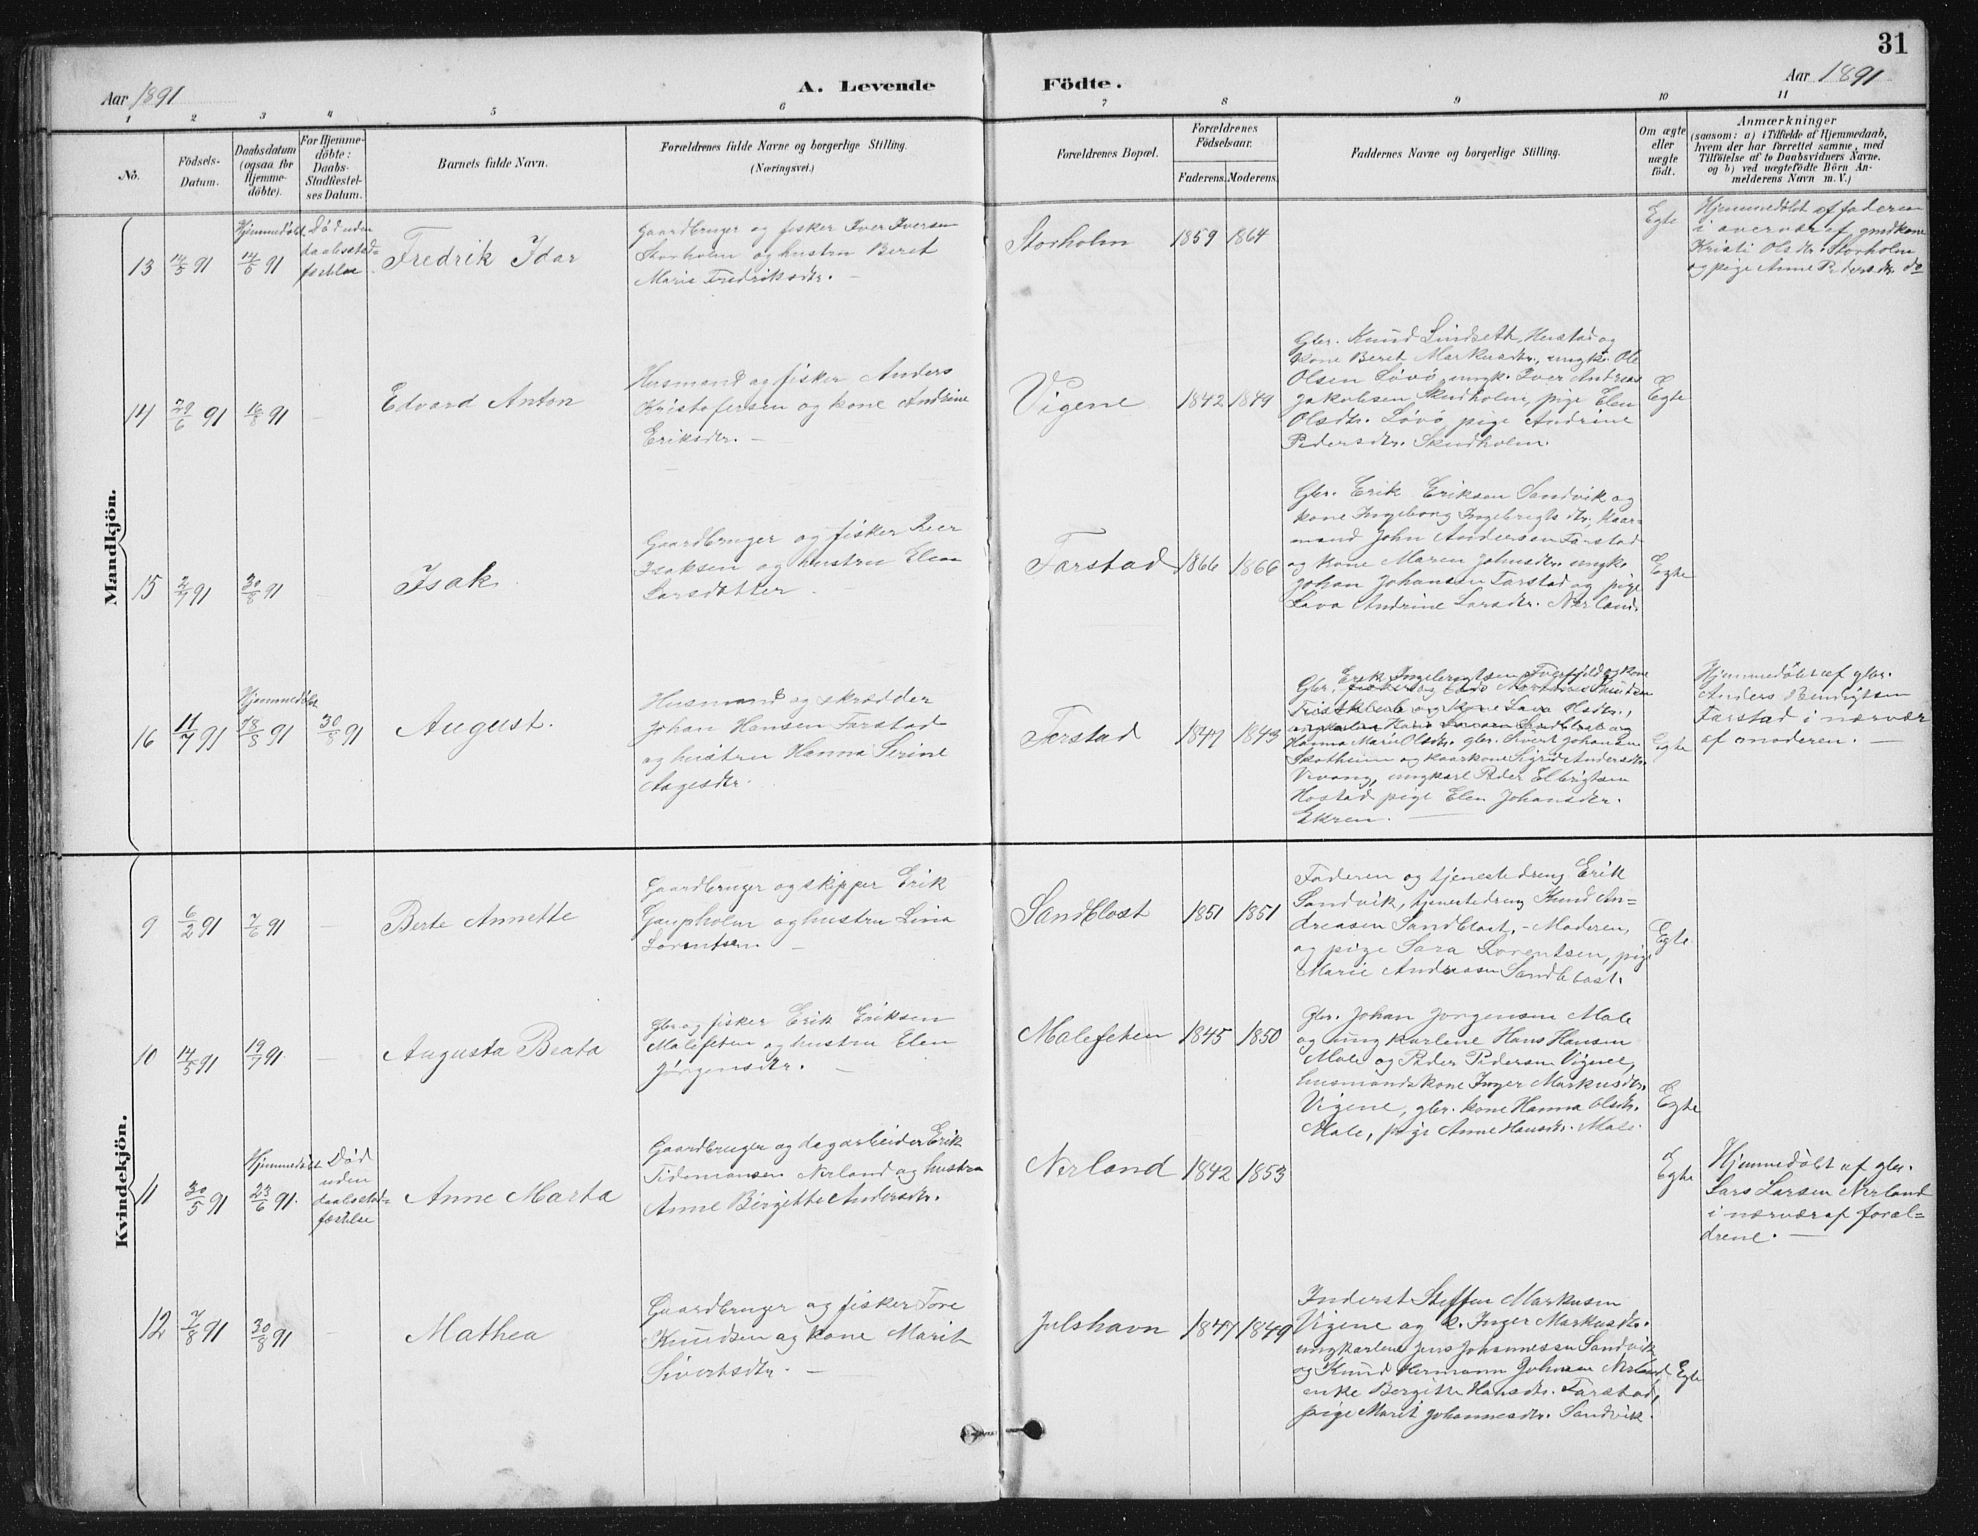 31
Aar 1891
A. Levende
Födte.
Aar 1891
1 2 3 4 5 6 7 8 9 10 11
No.
Födsels-Datum.
Daabsdatum (ogsaa for Hjemmedöbte).
For Hjemmedöbte: Daabs-Stadfæstelses Datum.
Barnets fulde Navn.
Forældrenes fulde Navne og borgerlige Stilling.
(Næringsvei.)
Forældrenes Bopæl.
Forældrenes Födselsaar.
Faderens. Moderens.
Faddernes Navne og borgerlige Stilling.
Om ægte eller uægte födt.
Anmærkninger
(saasom: a) i Tilfælde af Hjemmedaab,
hvem der har forrettet samme, med
Tilföielse af to Daabsvidners Navne,
og b) ved uægtefödte Börn Anmelderens Navn m. V.)
Mandkjön.
13
Hjemmedöbt
Död uden
daabsstad-
festelse
Fredrik Idar
Gaardbruger og fisker Iver Iversen
Storholm og hustru Beret
Marie Fredriksdtr. —
Storholm
1859 1864
Egte
Hjemmedöbt af faderen
i overvær af gmdkone
Kristi Olsdtr. Storholm
og pige Anne Pedersdtr. do
14
29/6 91
16/8 91
Edvard Anton
Husmand og fisker Anders
Kristofersen og kone Andrine
Eriksdtr. —
Vigene
1842 1849
Gbr. Knud Lindseth, Hustad og
kone Beret Markusdtr., ungk. Ole
Olsen Lövö, ungk. Iver Andreas
Jakobsen Skudholm, pige Elen
Olsdtr. Lövö, pige Andrine
Pedersdtr. Skudholm.
Egte
15
2/7 91
30/8 91
Isak
Gaardbruger og fisker Peer
Isaksen og hustru Elen
Larsdatter —
Farstad
1866 1866
Gbr. Erik Eriksen Sandvik og
kone Ingeborg Ingebrigtsdtr., kaar-
mand John Andersen Farstad
og kone Maren Johnsdtr. ungk.
Johan Johansen Farstad og pige
Lava Andrine Larsdtr. Nerland.
Egte
16
11/7 91
Hjemmedöbt
18/8 91
30/8 91
August.
Husmand og skrædder
Johan Hansen Farstad
og hustru Hanna Serine
Aagesdtr.
Farstad
1847 1843
Hanna Marie Olsdtr. gbr. Sivert Johansen
Skotheim og kaarkone Sigrid Andersdtr.
Vevang, ungkarl Peder Elbrigtsen
Hostad pige Elen Johansdtr.
Ekren. —
Egte
Hjemmedöbt af gbr.
Anders Henrigtsen
Farstad i nærvær
af moderen. —
Kvindekjön.
9
6/2 91
7/6 91
Berte Annette
Gaardbruger og skipper Erik
Gaupholm og hustru Lina
Lorentsen —
Sandblost
1851 1851
Faderen og tjenestedreng Erik
Sandvik, tjenestedreng Knud An-
dreasen Sandblost, - Moderen,
og pige Sara Lorentsen, pige
Marie Andreasen Sandblost.
Egte.
10
14/5 91
19/7 91
Augusta Beata
Gbr og fisker Erik Eriksen
Malefeten og hustru Elen
Jörgensdtr. —
Malefeten
1845 1850
Gbr. Johan Jörgensen Male
og ungkarlene Hans Hansen
Male og Peder Pedersen Vigene,
husmandskone Inger Markusdtr.
Vigene, gbr. kone Hanna Olsdtr.
Male, pige Anne Hansdtr. Male.
Egte
11
30/5 91
Hjemmedöbt
23/6 91.
Död
uden
daabsstad-
fæstelse
Anne Marta
Gaardbruger og dagarbeider Erik
Tidemansen Nerland og hustru
Anne Birgitte Andersdtr.
Nerland
1842 1853
Egte
Hjemmedöbt af gbr.
Lars Larsen Nerland
i nærvær af foræl-
drene. —
12
7/8 91
30/8 91
Mathea
Gaardbruger og fisker Tore
Knudsen og kone Marit
Sivertsdtr. —
Julshavn
1847 1849
Inderst Steffen Markusen
Vigene og k. Inger Markusdtr.
ungkarlene Jens Johannessen Sandvik
og Knud Hermann Johnsen Nerland
enke Bergitte Hansdtr. Farstad,
pige Marit Johannesdtr. Sandvik.
Egte